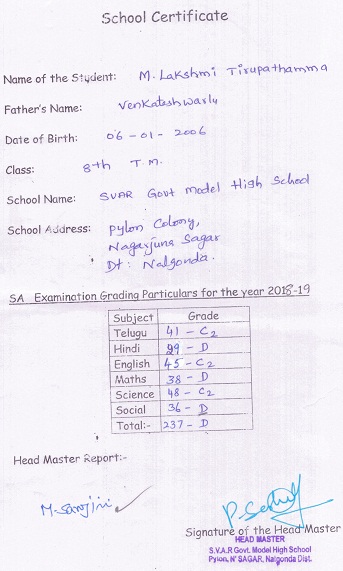 School Certificate
Name of the Student: M. Lakshmi Tirupathamma
Father's Name: Venkateshwarlu
Date of Birth: 06-01-2006
Class: 8th T.M.
School Name: SVAR Govt Model High School
School Address: Pylon Colony,
Nagarjuna Sagar
Dt: Nalgonda.
SA Examination Grading Particulars for the year 2018-19
Subject Grade
Telugu 41 - C2
Hindi 29 - D
English 45 - C2
Maths 38 - D
Science 48 - C2
Social 36 - D
Total:- 237 - D
Head Master Report:-
M. Sarojini
Signature of the Head Master
HEAD MASTER
S.V.A.R Govt. Model High School
Pylon, N' SAGAR, Nalgonda Dist.